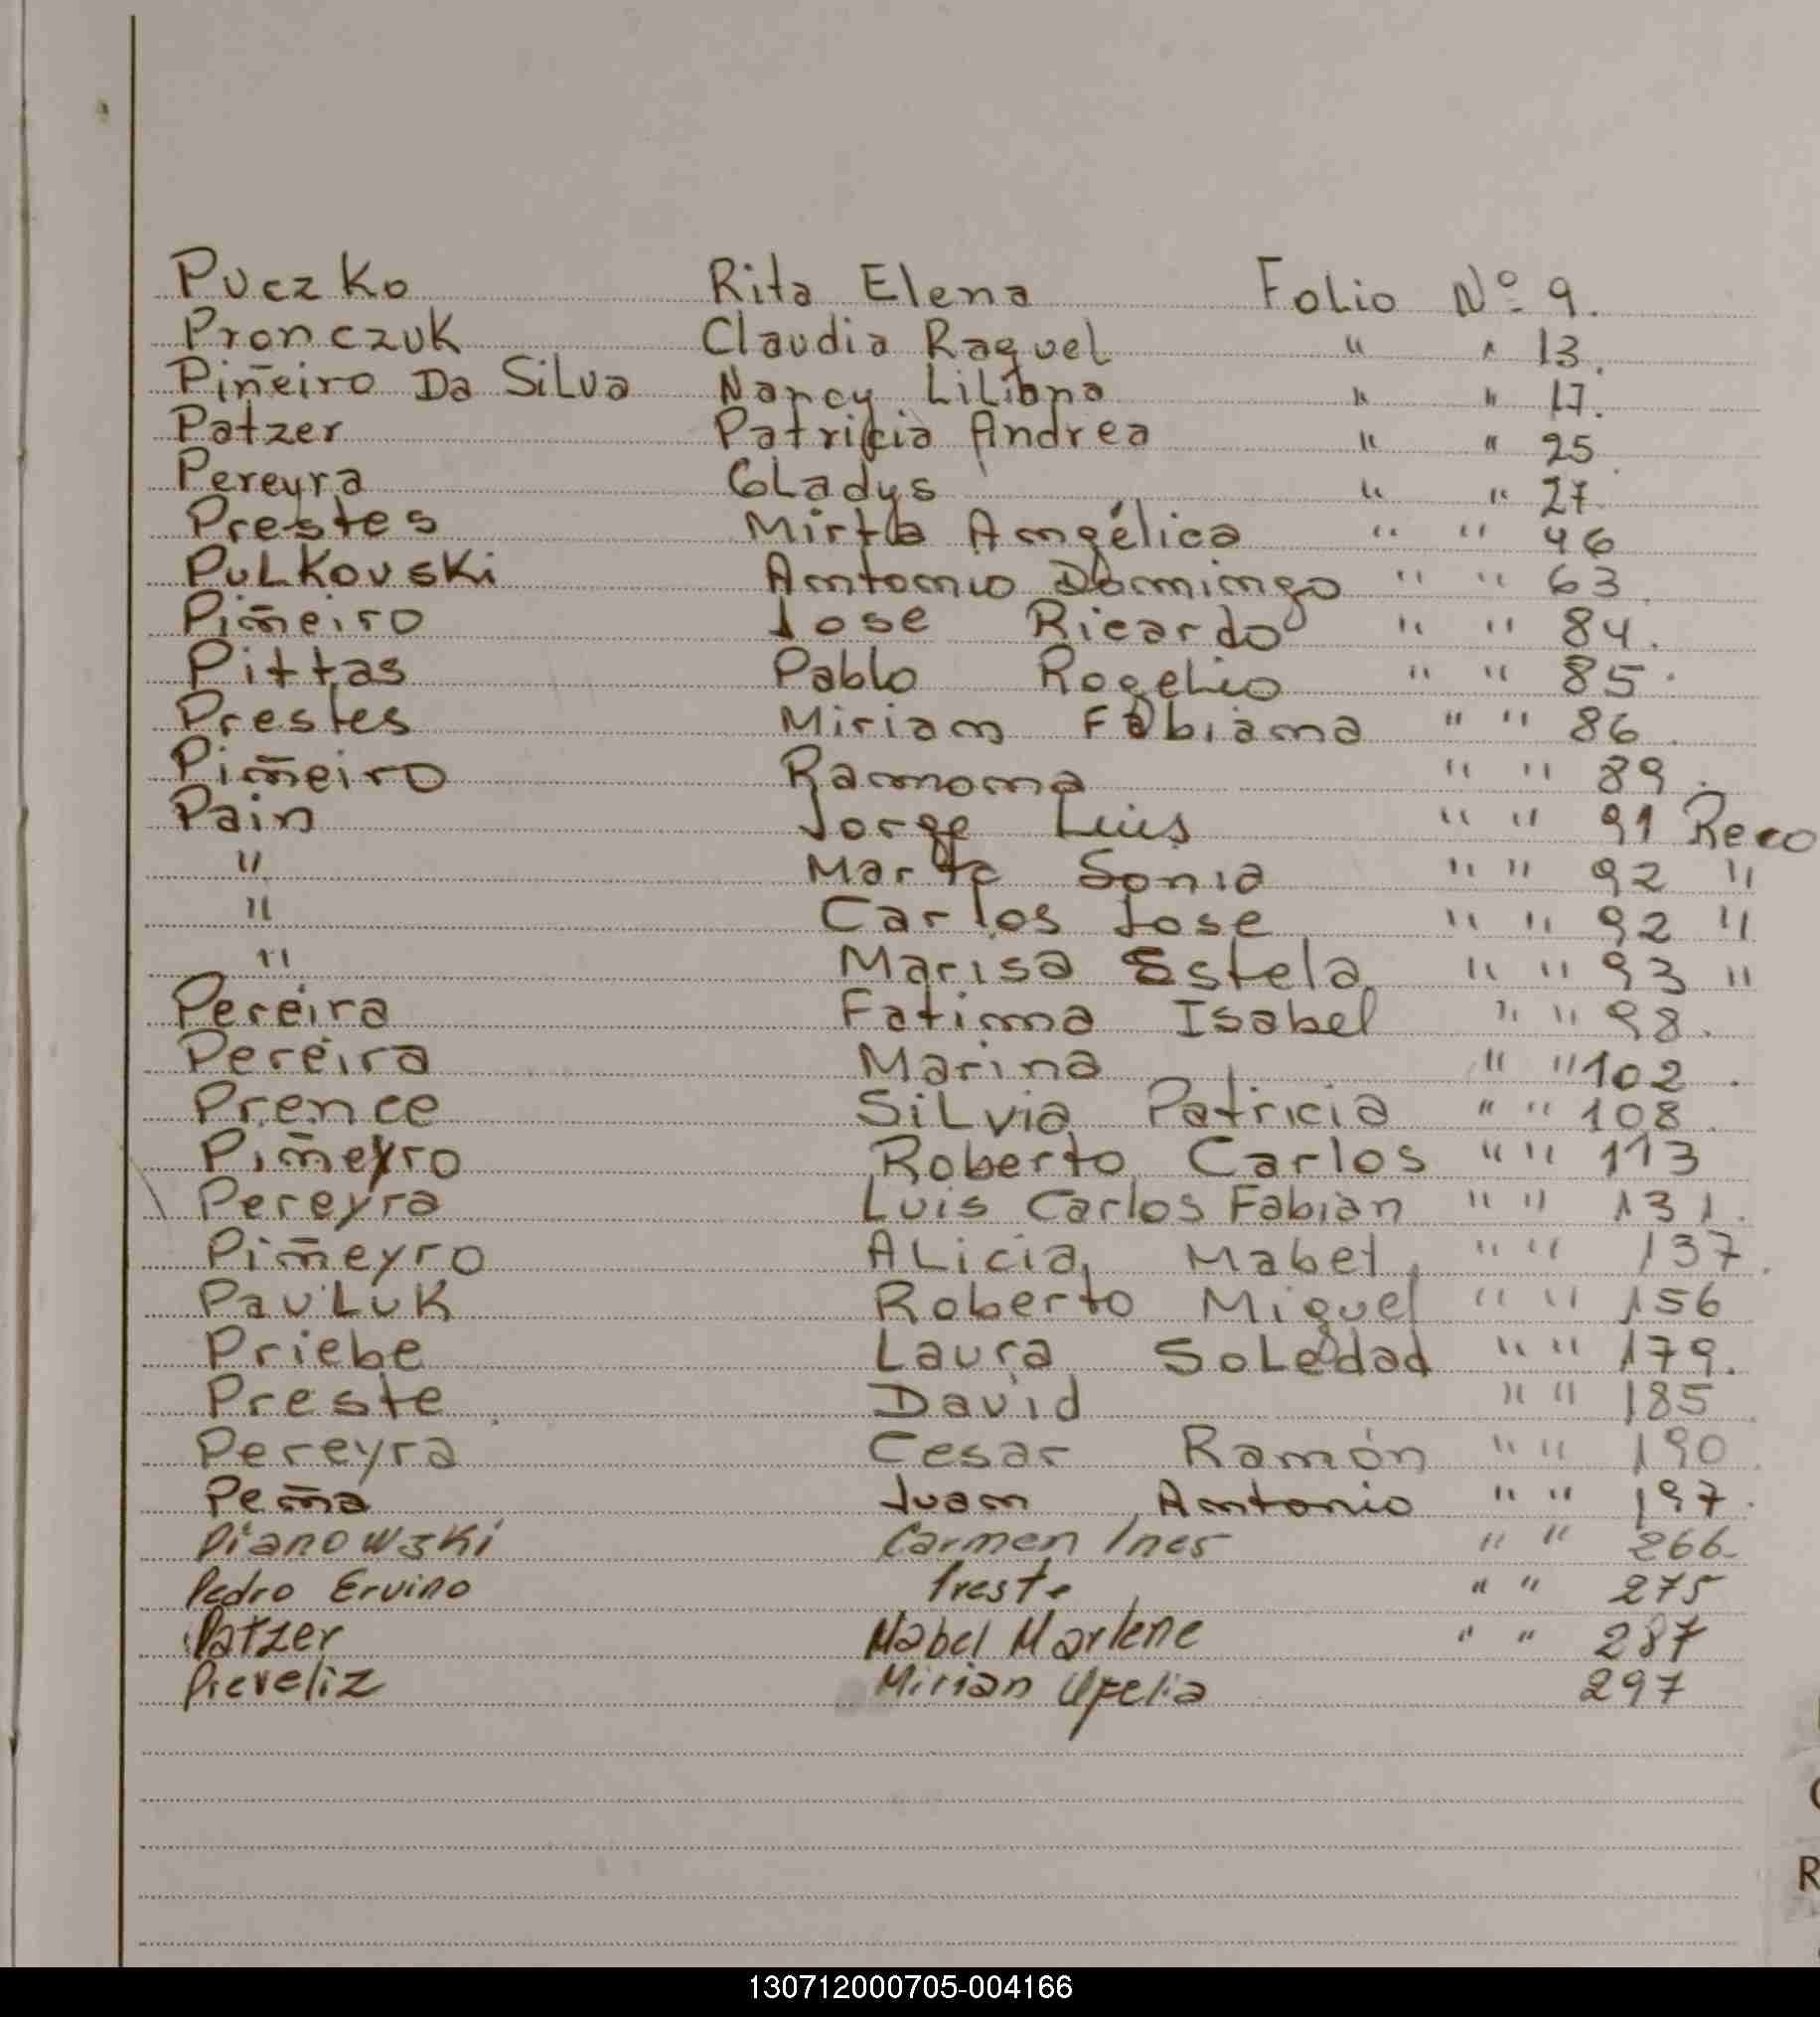 Puczko Rita Elena Folio Nº 9.
Pronczuk Claudia Raquel " " 13.
Piñeiro Da Silva Nancy Liliana " " 17.
Patzer Patricia Andrea " " 25
Pereyra Gladys " " 27
Prestes Mirta Angélica " " 46
Pulkovski Antonio Domingo " " 63
Piñeiro Jose Ricardo " " 84.
Pittas Pablo Rogelio " " 85.
Prestes Miriam Fabiana " " 86.
Piñeiro Ramona " " 89.
Pain Jorge Luis " " 91 Reco
" Marta Sonia " " 92 "
" Carlos Jose " " 92 "
" Marisa Estela " " 93 "
Pereira Fatima Isabel " " 98.
Pereira Marina " " 102.
Prence Silvia Patricia " " 108.
Piñeyro Roberto Carlos " " 113
Pereyra Luis Carlos Fabian " " 131.
Piñeyro Alicia Mabel " " 137.
Pauluk Roberto Miguel " " 156
Priebe Laura Soledad " " 179.
Preste David " " 185
Pereyra Cesar Ramón " " 190
Peña Juan Antonio " " 197.
Pianowski Carmen Ines " " 266
Pedro Ervino Preste " " 275
Patzer Mabel Marlene " " 287
Mirian 297
130712000705-004166